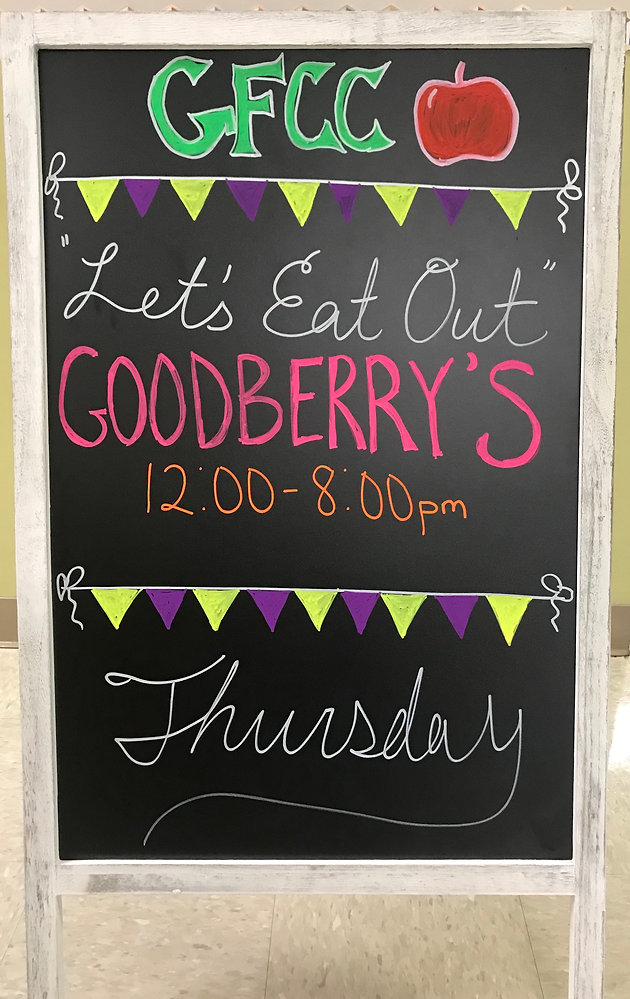 GFCC
"Let's Eat Out"
GOODBERRY'S
12:00-8:00pm
Thursday